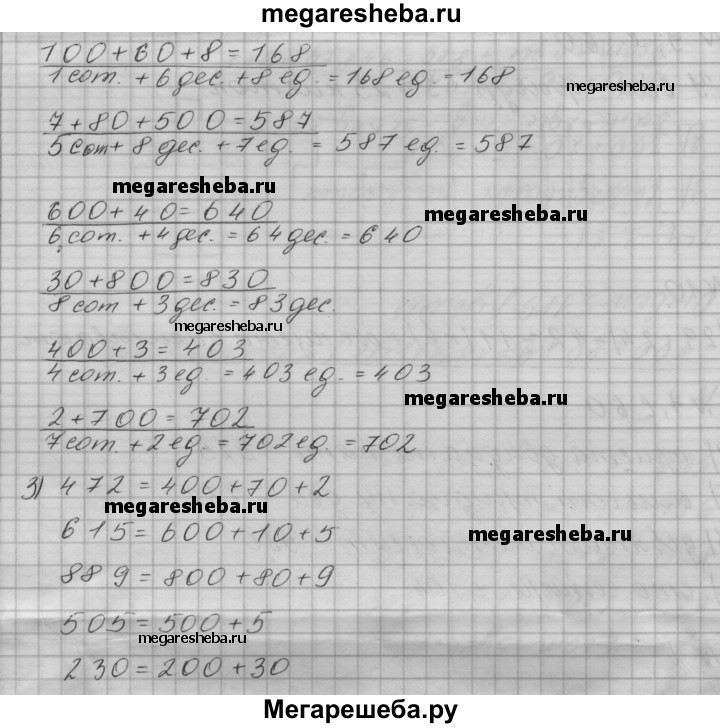 megaresheba.ru
100+60+8=168
1 сот. + 6 дес. + 8 ед. = 168 ед. = 168
megaresheba.ru
7+80+500=587
5 сот + 8 дес. + 7 ед. = 587 ед. = 587
megaresheba.ru
megaresheba.ru
600+40=640
6 сот. + 4 дес. = 64 дес. = 640
30+800=830
8 сот + 3 дес. = 83 дес.
megaresheba.ru
400+3=403
4 сот. + 3 ед. = 403 ед. = 403
megaresheba.ru
2+700=702
7 сот. + 2 ед. = 702 ед. = 702
3) 472=400+70+2
megaresheba.ru
615=600+10+5
megaresheba.ru
889=800+80+9
505=500+5
megaresheba.ru
230=200+30
Мегарешеба.ру